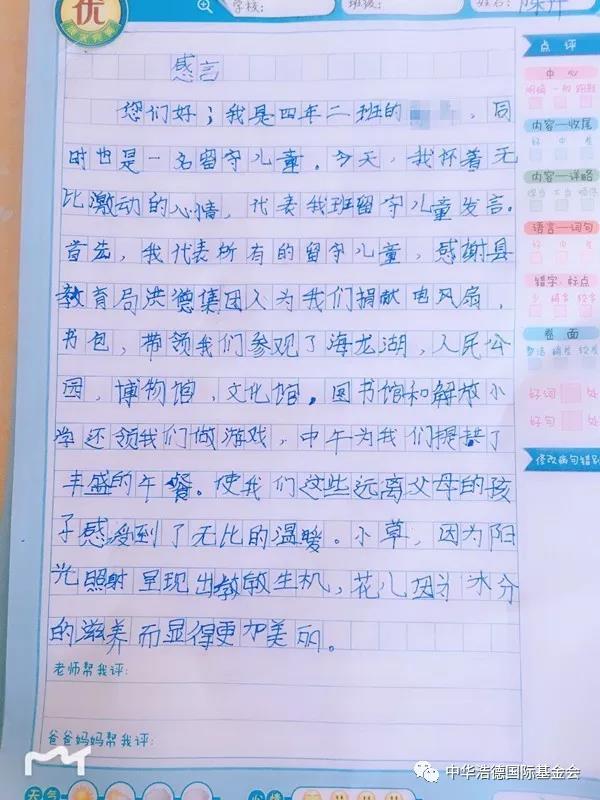 优
学校:
班级:
姓名:
感言
您们好；我是四年二班的 ，同
时也是一名留守儿童。今天，我怀着无
比激动的心情，代表我班留守儿童发言。
首先，我代表所有的留守儿童，感谢县
教育局洪德集团人为我们捐献电风扇，
书包，带领我们参观了海龙湖，人民公
园，博物馆，文化馆。图书馆和解放小
学还领我们做游戏，中午为我们提拱了
丰盛的午餐。使我们这些远离父母的孩
子感受到了无比的温暖。小草，因为阳
光照射呈现出敏生机，花儿因为水分
的滋养而显得更加美丽。
老师帮我评:
爸爸妈妈帮我评:
天气
心情
点评
中心
明确 一般
内容—收尾
好 中 差
内容—详略
语言—词句
好 中 差
错字、标点
少
卷面
整洁
好词 处
好句 处
修改病句错别
中华浩德国际基金会